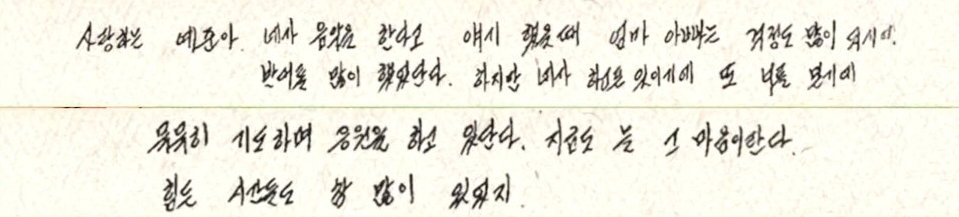 사랑하는 예준아. 네가 음악을 한다고 얘기 했을때 엄마 아빠는 걱정도 많이 되기에.
반대를 많이 했었단다. 하지만 네가 또 너를 믿기에
묵묵히 기도하며 응원을 하고 있단다. 지금도 늘 그 마음이란다.
힘든 시간들도 참 많이 있었지.